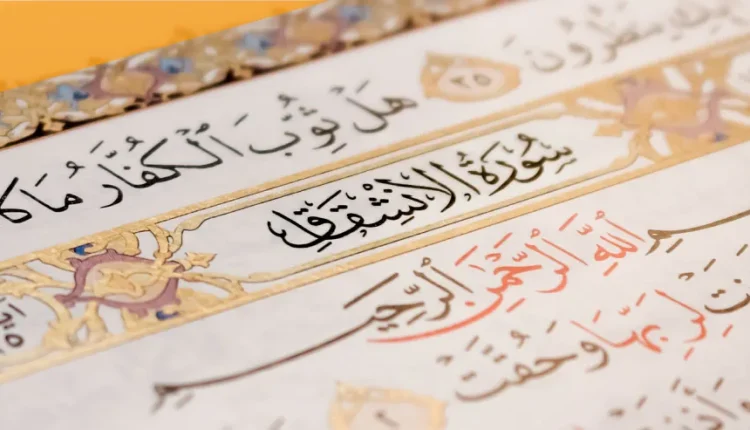 يَنظُرُونَ ٣٥
هَلْ ثُوِّبَ ٱلْكُفَّارُ مَا
سُورَةُ الْاِنْشِقَاقِ
ٱللَّهِ ٱلرَّحْمَٰنِ ٱلرَّحِيمِ
لِرَبِّهَا وَحُقَّتْ
٢